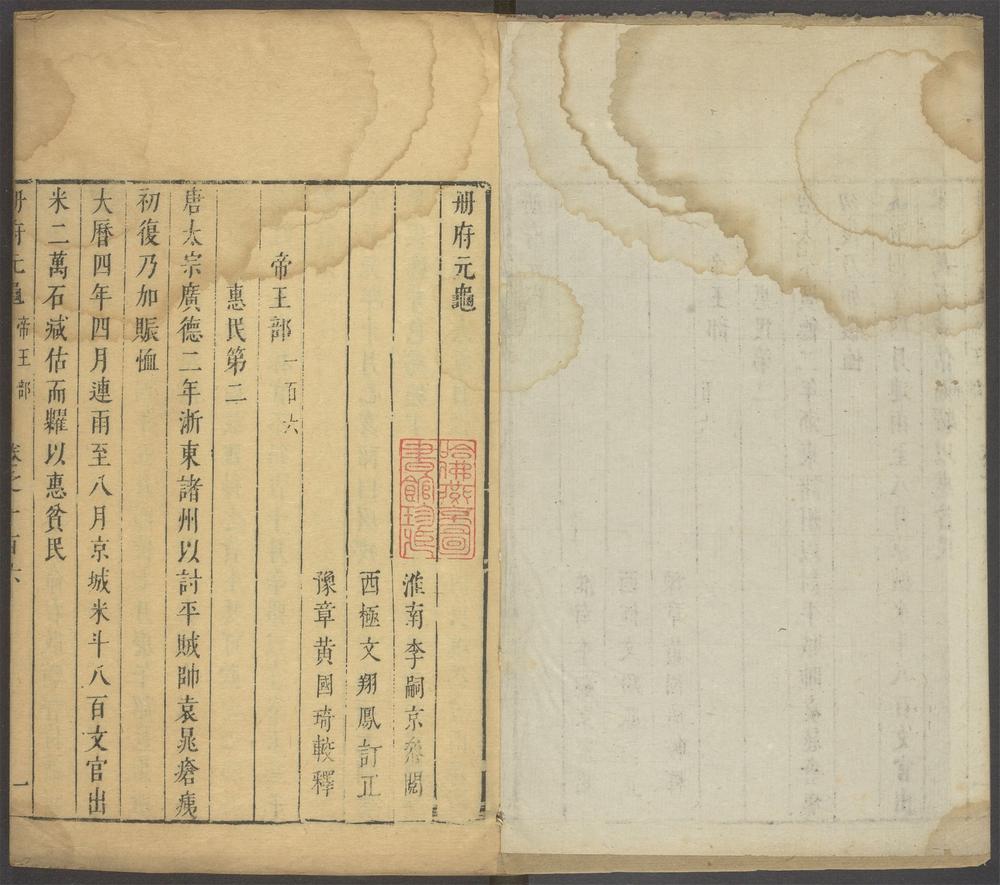 册府元龜
淮南李嗣京叅閱
西極文翔鳳訂正
豫章黃國琦較釋
帝王部 一百六
惠民第二
唐太宗廣德二年浙東諸州以討平賊帥袁晁瘡痍
初復乃加賑恤
大曆四年四月連雨至八月京城米斗八百文官出
米二萬石減估而糶以惠貧民
册府元龜 帝王部 卷之一百六 一
哈佛燕京圖
書館珍藏